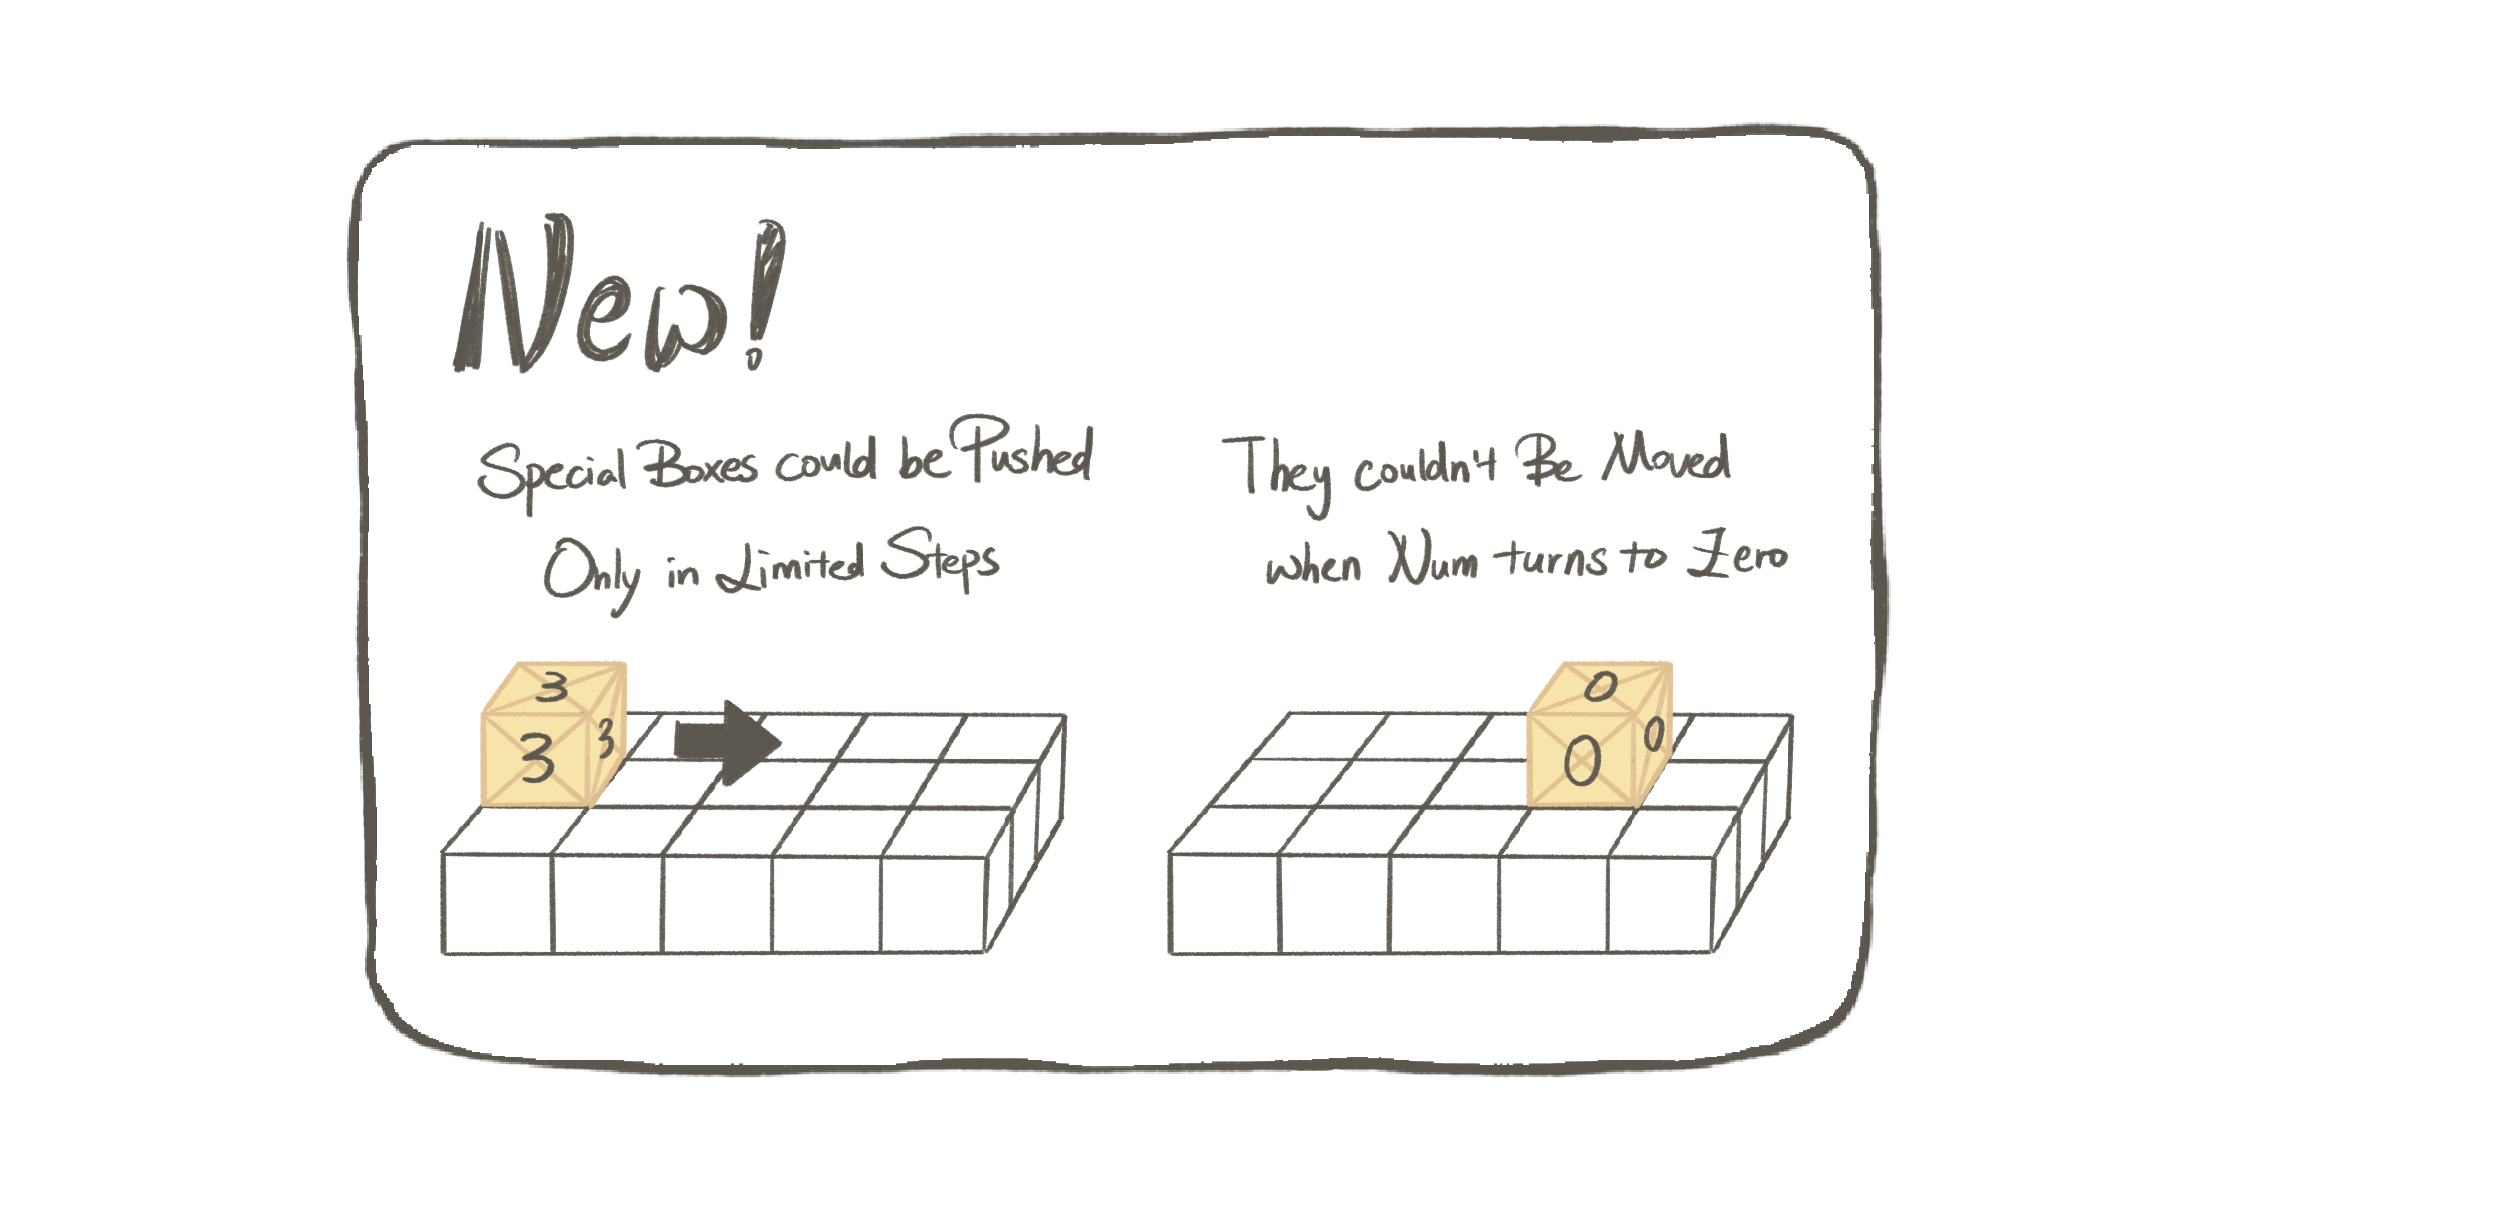 New!
Special Boxes could be Pushed
Only in Limited Steps
They couldn't Be Moved
when Num turns to Zero
3
3
3
0
0
0